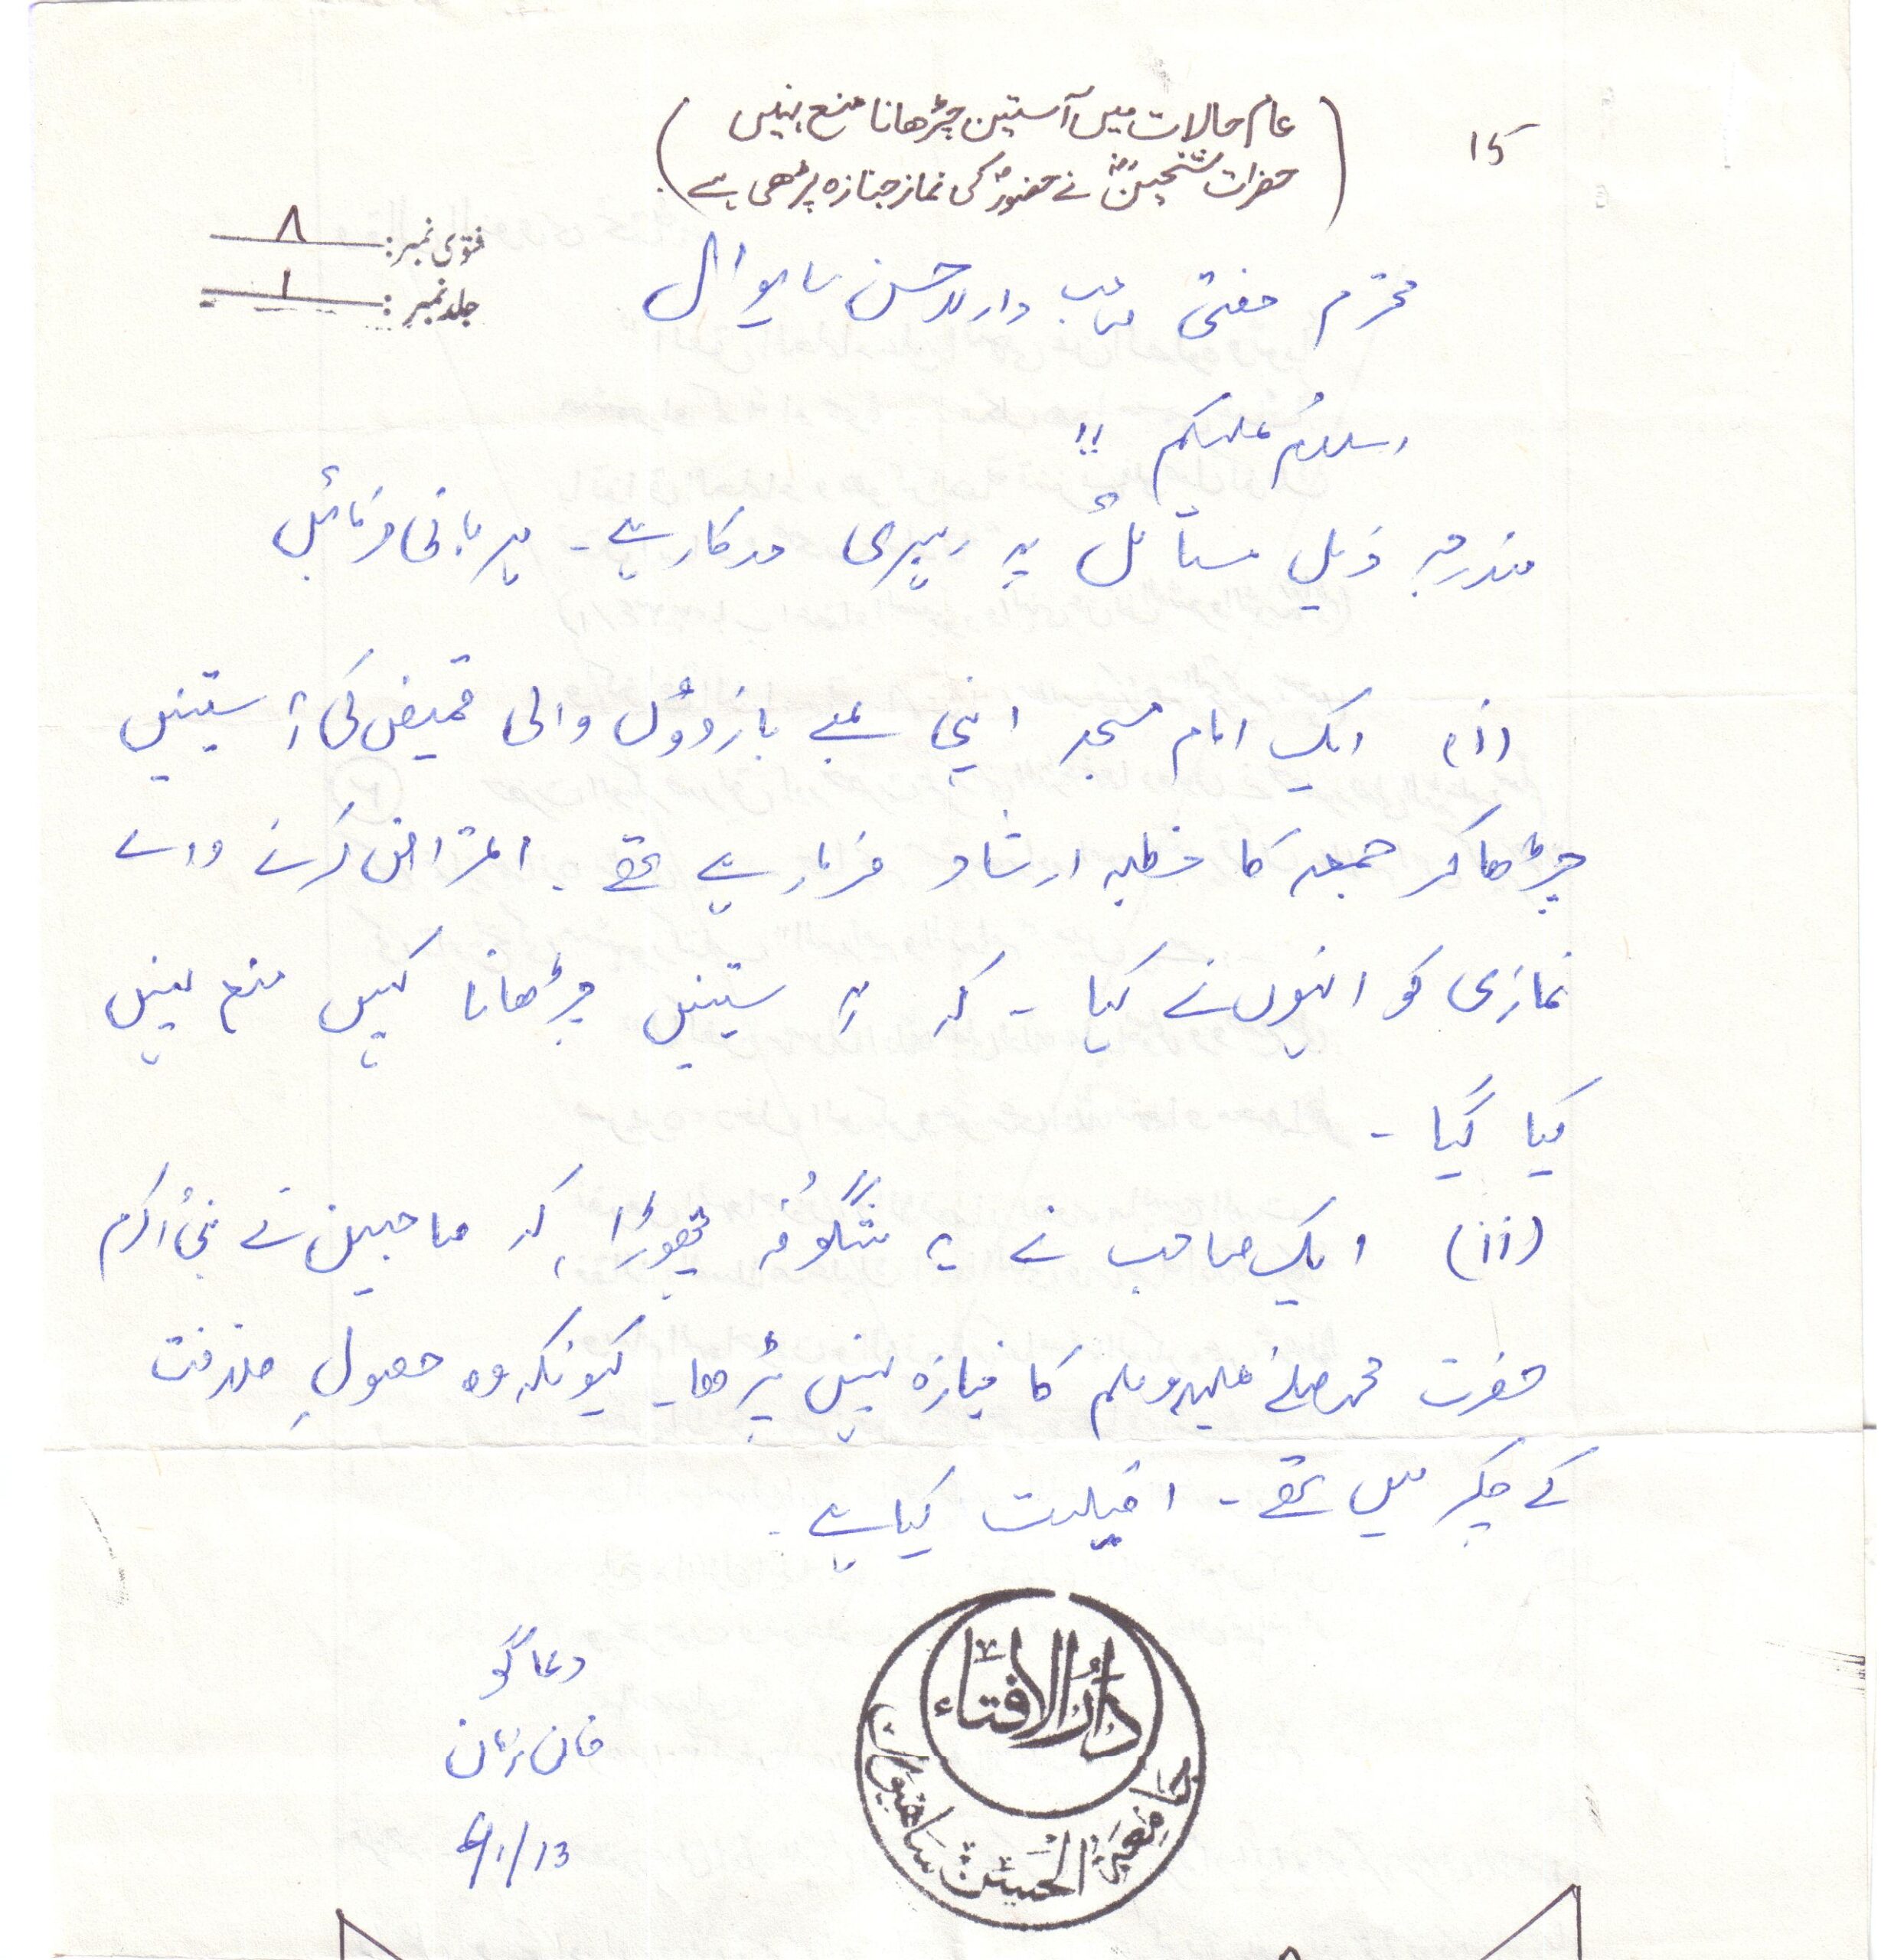 15
(عام حالات میں آستین چڑھانا منع نہیں
حضرات شیخینؓ نے حضورؐ کی نماز جنازہ پڑھی ہے)
فتوی نمبر: ۸
جلد نمبر: ۱
محترم مفتی صاحب دارالحسن ساہیوال
اسلام علیکم !!
مندرجہ ذیل مسائل پہ رہبری درکار ہے۔ مہربانی فرمائیں
(i) ایک امام مسجد اپنی لمبے بازووُں والی قمیض کی آستینیں
چڑھا کر جمعہ کا خطبہ ارشاد فرما رہے تھے۔ اعتراض کرنے والے
نمازی کو انہوں نے کہا ۔ کہ آستینیں چڑھانا کہیں منع نہیں
کیا گیا ۔
(ii) ایک صاحب نے یہ شگوُفہ چھوڑا کہ صاحبین نے نبی اکرم
حضرت محمد صلے علیہ وسلم کا جنازہ نہیں پڑھا۔ کیونکہ وہ حصولِ خلافت
کے چکر میں تھے ۔ اصلیت کیا ہے ۔
دعا گو
خان زمان
6/1/13
دارُ الافتاء
جامعہ الحسن ساھیوال